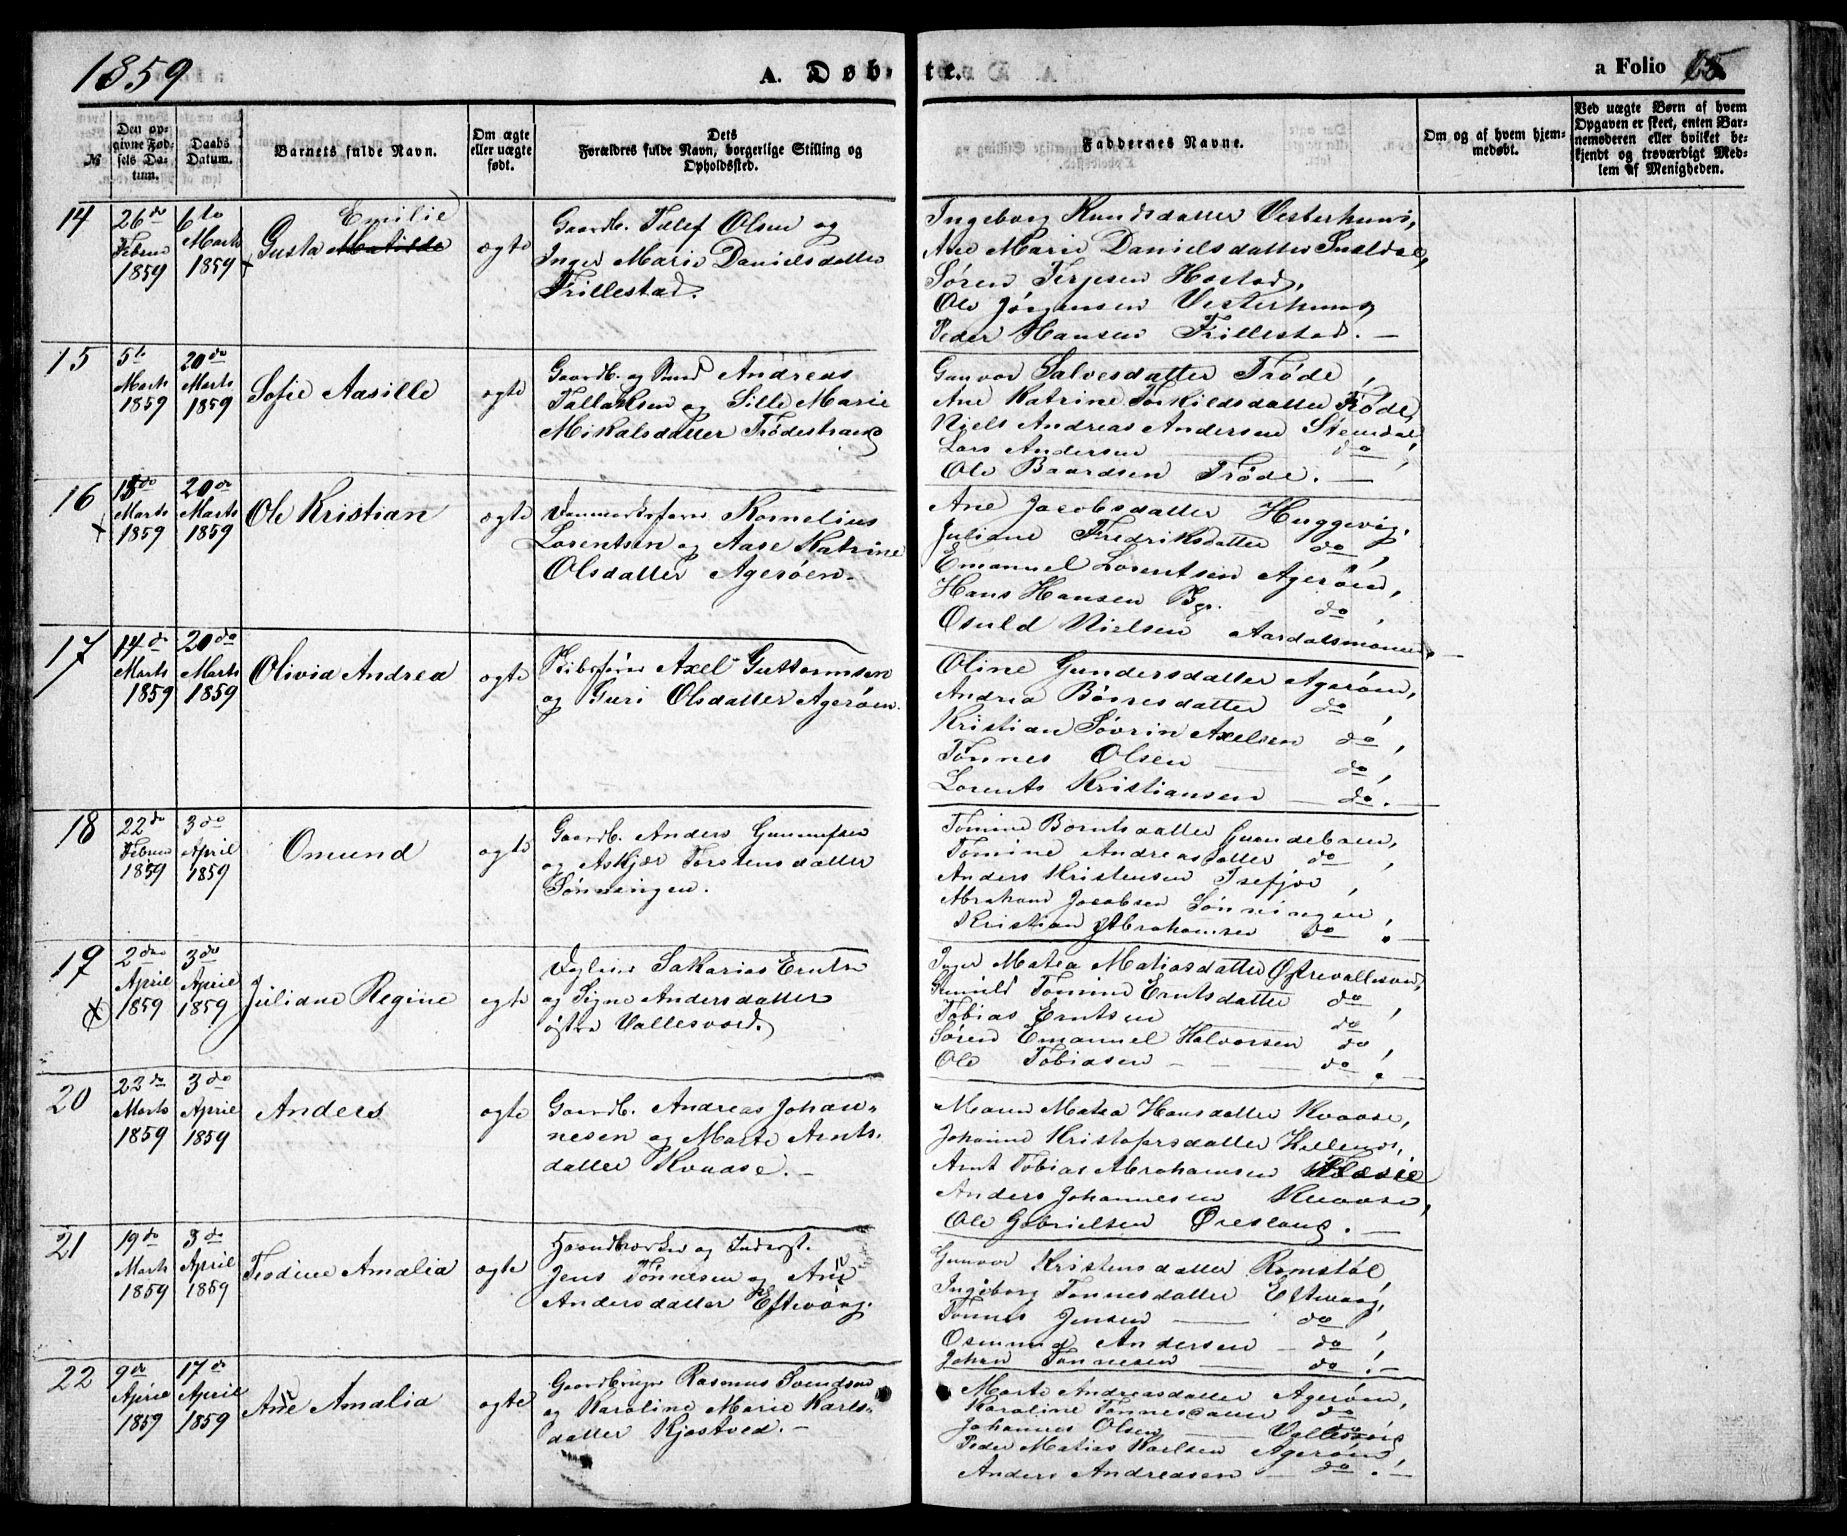 1859
A. Døb-
te.
a Folio 65
№
Den op-
givne Fød-
sels Da-
tum.
Daabs
Datum.
Barnets fulde Navn.
Om ægte
eller uægte
født.
Dets
Forældres fulde Navn, borgerlige Stilling og
Opholdssted.
Faddernes Navne.
Om og af hvem hjem-
medøbt.
Ved uægte Børn af hvem
Opgaven er skeet, enten Bar-
nemoderen eller hvilket be-
kjendt og troværdigt Med-
lem af Menigheden.
14
26de
Februar
1859
6te
Marts
1859
Emilie
Gusta Matilde
ægte
Gaardb. Tallef Olsen og
Inger Marie Danielsdatter
Trillestad.
Ingeborg Knudsdatter Vesterhuus,
Ane Marie Danielsdatter
Søren Terjesen Hastad,
Ole Jørgensen Vesterhuus
Peder Hansen Trillestad. —
15
5te
Marts
1859
20de
Marts
1859
Sofie Aasille
ægte
Gaardb. og Andreas
Tallaksen og Sille Marie
Mikalsdatter Trødestrand
Gunvor Salvesdatter Trøde,
Ane Katrine Torkildsdatter Trøde,
Niels Andreas Andersen Stemdal
Lars Andersen do,
Ole Baardsen Trøde. —
16
13de
Marts
1859
20de
Marts
1859
Ole Kristian
ægte
Kornelius
Lorentsen og Aase Katrine
Olsdatter Agerøen.
Ane Jacobsdatter Huggevig,
Juliane Fredriksdatter do,
Emanuel Lorentsen Agerøen,
Hans Hansen do,
Osuld Nielsen
17
14de
Marts
1859
20de
Marts
1859
Olivia Andrea
ægte
Skibsfører Axel Guttormsen
og Guri Olsdatter Agerøen.
Oline Gundersdatter Agerøen,
Andrea Børresdatter do,
Kristian Søvrin Axelsen do,
Tønnes Olsen — do,
Lorents Kristiansen — do. —
18
22de
Februar
1859
3de
April
1859
Omund
ægte
Gaardb. Anders Gunnufsen
og Askjær Torstensdatter
Sønningen.
Tomine Berntsdatter
Tomine Andreasdatter do,
Anders Kristensen Isefjær,
Abraham Jacobsen Sønningen,
Kristian Abrahamsen do. —
19
2den
April
1859
3de
April
1859
Juliane Regine
ægte
Sakarias Erntsen
og Signe Andersdatter
østre Vallesværd.
Inger Matea Matiasdatter Østrevallesværd,
Gunild Tomine Erntsdatter do,
Tobias Erntsen do
Søren Emanuel Halvorsen do,
Ole Tobiasen — — do. —
20
22de
Marts
1859
3de
April
1859
Anders
ægte
Gaardb. Andreas Johan-
nesen og Marte Arnts-
datter Kvaase. —
Maren Matea Hansdatter Kvaase,
Johanne Kristofersdatter
Arnt Tobias Abrahamsen
Anders Johannesen Kvaase,
Ole Gabrielsen Øresland. —
21
19de
Marts
1859
3de
April
1859
Teodine Amalia
ægte
Haandværker og Inderst.
Jens Tønnesen og Ane
Andersdatter Eftevaag.
Gunvor Kristensdatter Romstøl
Ingeborg Tønnesdatter Eftevaag,
Tønnes Jensen — do,
Osmund Andersen — do,
Johan Tønnesen — do. —
22
9de
April
1859
17de
April
1859
Ane Amalia
ægte
Gaardbruger Rasmus Svendsen
og Karoline Marie Karls-
datter Kjøstved. —
Marte Andreasdatter Agerøen,
Karoline Tønnesdatter do
Johannes Olsen — Vallesværd
Peder Matias Karlsen Agerøen,
Anders Andreasen — do. —